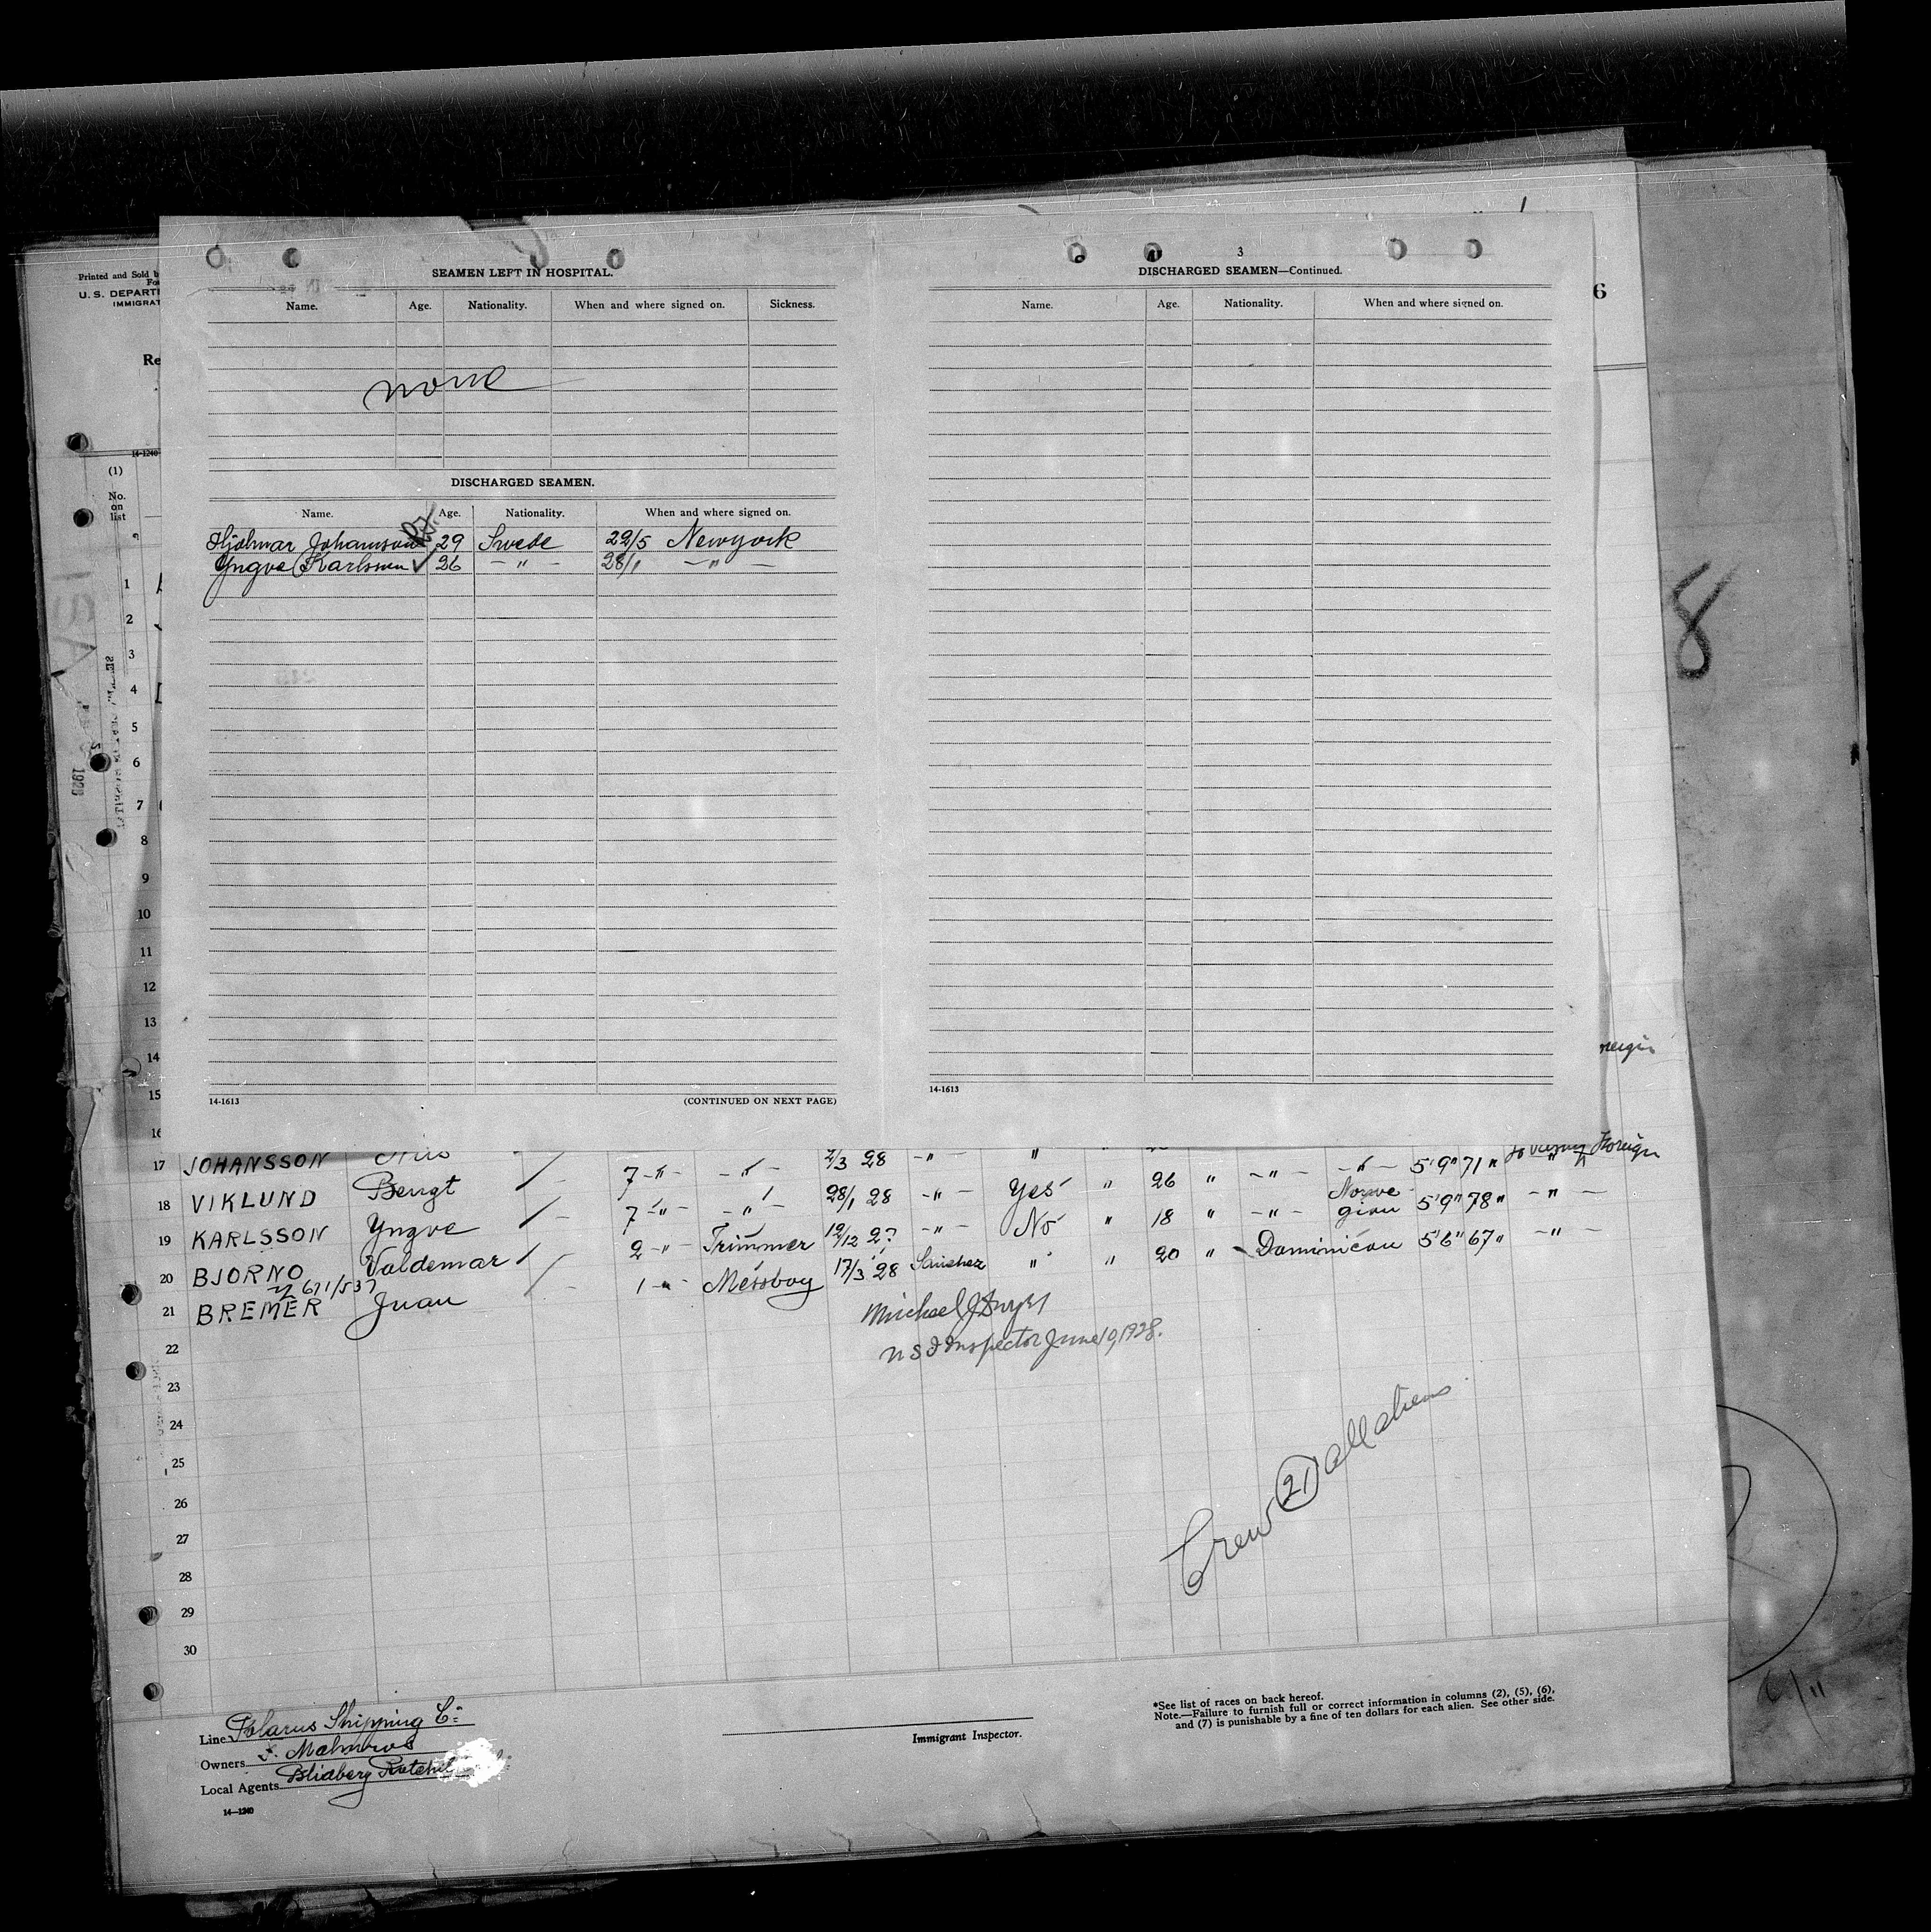 Printed and Sold b
U. S. DEPARTI
IMMIGRAT
Re
14-1240
(1)
No.
on
list
3
6
8
SEAMEN LEFT IN HOSPITAL.
Name. Age. Nationality. When and where signed on. Sickness.
none
DISCHARGED SEAMEN.
Name. Age. Nationality. When and where signed on.
Hjalmar Johansson 29 Swede 29/5 Newyork
Yngve Karlsson ✓ 26 — " — 28/1 — " —
14-1613 (CONTINUED ON NEXT PAGE)
DISCHARGED SEAMEN—Continued.
Name. Age. Nationality. When and where signed on.
14-1613
1
2
3
4
5
6
7
8
9
10
11
12
13
14
15
16
1928
17 JOHANSSON 2/3 28 -"- "
18 VIKLUND Bengt 7 -"- -"- 28/1 28 -"- Yes " 26 " -"- -"- 5'9" 71 " " Foreign
19 KARLSSON Yngve 7 -"- -"- 19/12 27 -"- No " 18 " -"- Norwegian 5'9" 78 " -"-
20 BJORNO Valdemar 2 -"- Trimmer 17/3 28 Sanchez " " 20 " Dominican 5'6" 67 " -"-
671/537
21 BREMER Juan 1 -"- Messboy
Michael J Dwyer
U S I Inspector June 10, 1928.
22
23
24
25
26
27
28
29
30
Crew 21 all aliens
Line Polarus Shipping Co
Owners J. Malmros
Local Agents Blidberg Rotchel
14—1240
Immigrant Inspector.
*See list of races on back hereof.
Note.—Failure to furnish full or correct information in columns (2), (5), (6),
and (7) is punishable by a fine of ten dollars for each alien. See other side.